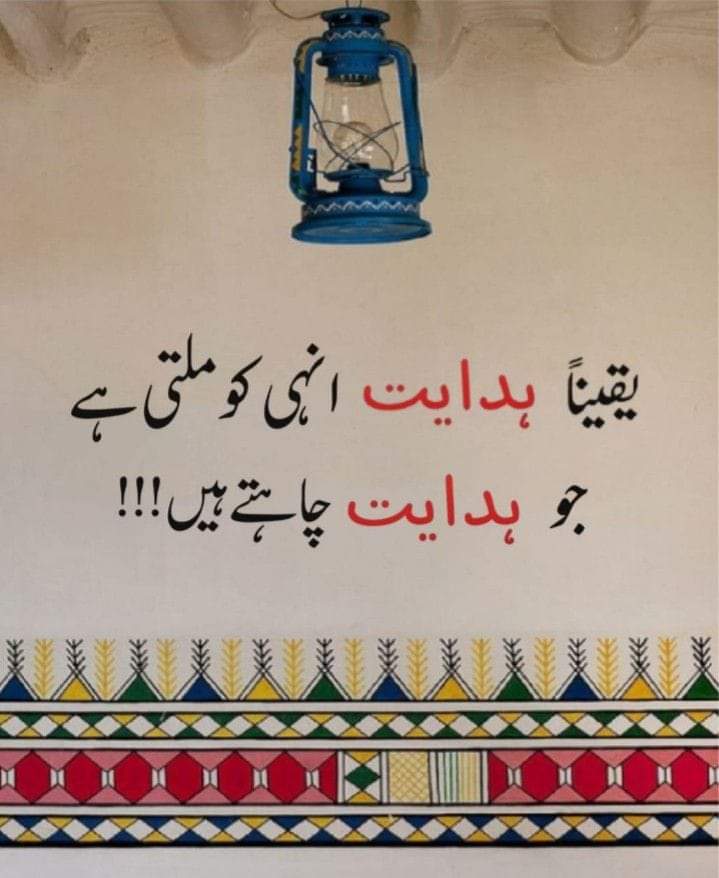 یقیناً ہدایت انہی کو ملتی ہے
جو ہدایت چاہتے ہیں!!!